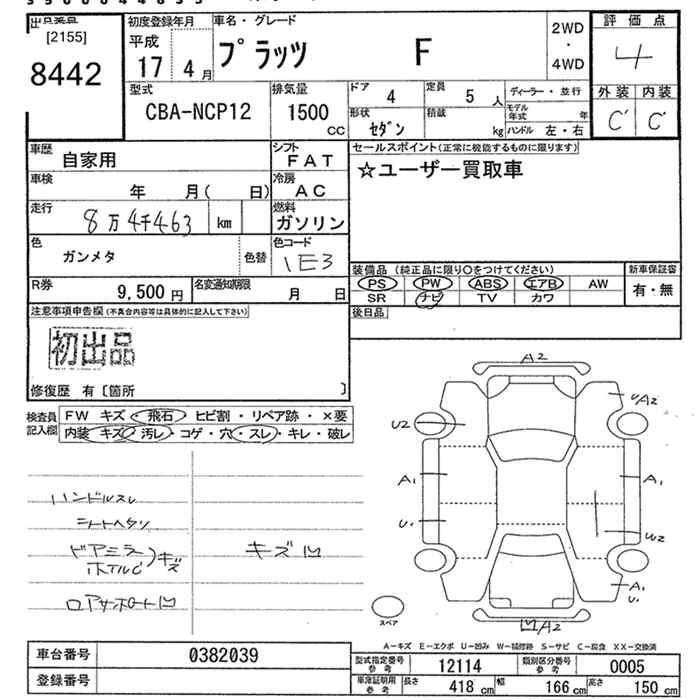 出品業者
[2155]
8442
初度登録年月
平成
17 4月
車名・グレード
プラッツ F
2WD
・
4WD
評価点
4
外装 内装
C' C'
型式
CBA-NCP12
排気量
1500
CC
ドア 4
定員 5 人
形状 セダン
積載 kg
ディーラー・並行
モデル年式 年
ハンドル 左・右
車歴 自家用
シフト
FAT
車検 年 月( 日)
冷房
AC
走行 8万4千463 km
燃料
ガソリン
色 ガンメタ
色替
色コード
1E3
R券 9,500 円
名変通知期限 月 日
セールスポイント(正常に機能するものに限ります)
☆ユーザー買取車
装備品(純正品に限り○をつけてください)
PS PW ABS エアB AW
SR ナビ TV カワ
新車保証書
有・無
後日品
注意事項申告欄(不具合内容等は具体的に記入して下さい)
初出品
修復歴 有〔箇所 〕
検査員
記入欄
FW キズ・飛石・ヒビ割・リペア跡・×要
内装 キズ・汚レ・コゲ・穴・スレ・キレ・破レ
ハンドルスレ
シートヘタリ
ドアミラー
ホイルC
キズ
キズ凹
ロアサポート凹
A2
U/A2
U2
A1
A1
U1
W2
A1
U1
凹A2
スペア
A-キズ E-エクボ U-凹み W-補修跡 S-サビ C-腐食 XX-交換済
車台番号 0382039
登録番号
型式指定番号
参考
12114
類別区分番号
参考
0005
車庫証明用
参考
長さ 418 cm
幅 166 cm
高さ 150 cm